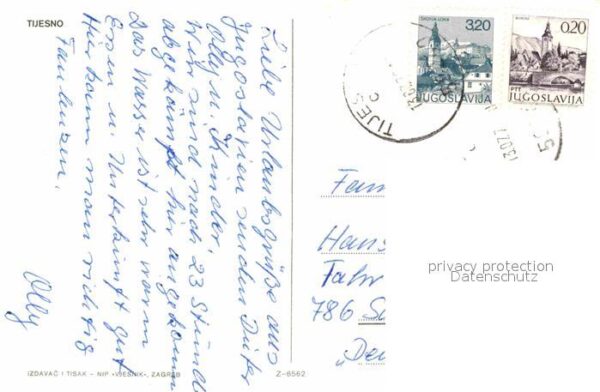 TIJESNO
Liebe Urlaubsgrüße aus
Jugoslavien senden Dieter
Olly u. Kinder.
Wir sind nach 23 Stunden
abgekämpft hier angekommen
Das Wasser ist sehr warm
Essen u. Unterkunft gut
Hier kann man richtig
Faulenzen.
Olly
3.20
JUGOSLAVIJA
0.20
PTT
JUGOSLAVIJA
TIJES
Fam
Hans
786
privacy protection
Datenschutz
IZDAVAČ I TISAK – NIP »VJESNIK«, ZAGREB
Z-6562